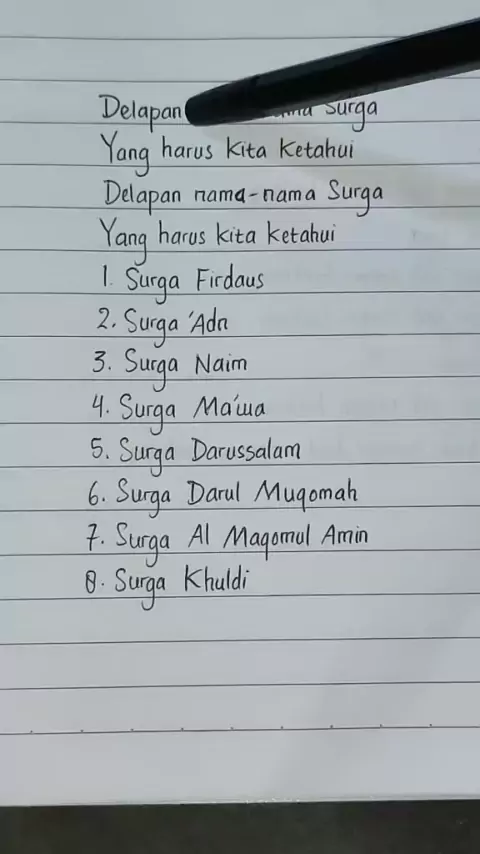 Delapan Surga
Yang harus kita ketahui
Delapan nama-nama Surga
Yang harus kita ketahui
1. Surga Firdaus
2. Surga 'Adn
3. Surga Naim
4. Surga Ma'wa
5. Surga Darussalam
6. Surga Darul Muqomah
7. Surga Al Maqomul Amin
8. Surga Khuldi